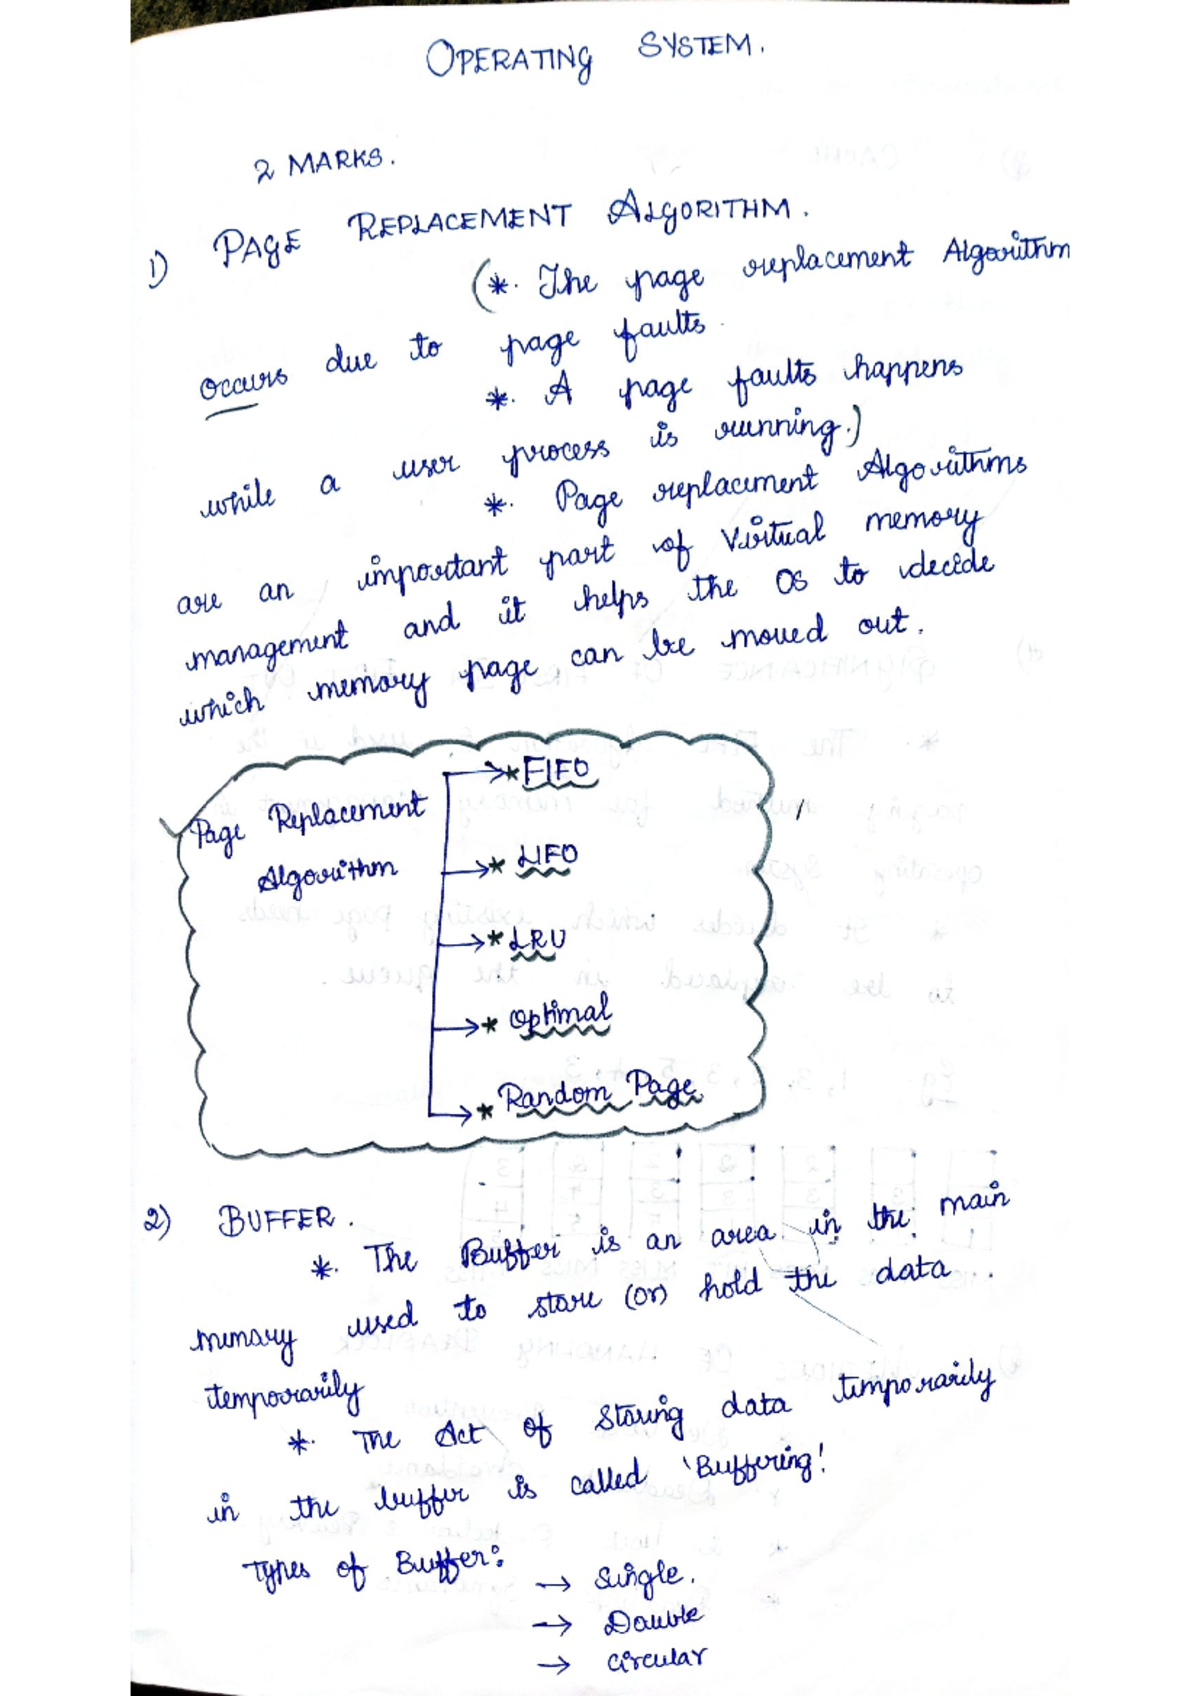 OPERATING SYSTEM.
2 MARKS.
1) PAGE REPLACEMENT ALGORITHM.
(*. The page replacement Algorithm
occurs due to page faults.
*. A page faults happens
while a user process is running.)
*. Page replacement Algorithms
are an important part of Virtual memory
management and it helps the OS to decide
which memory page can be moved out.
Page Replacement
Algorithm
*FIFO
* LIFO
* LRU
* Optimal
* Random Page
2) BUFFER.
*. The Buffer is an area in the main
memory used to store (or) hold the data
temporarily
*. The Act of Storing data temporarily
in the buffer is called 'Buffering!
Types of Buffer:
→ Single.
→ Double
→ Circular